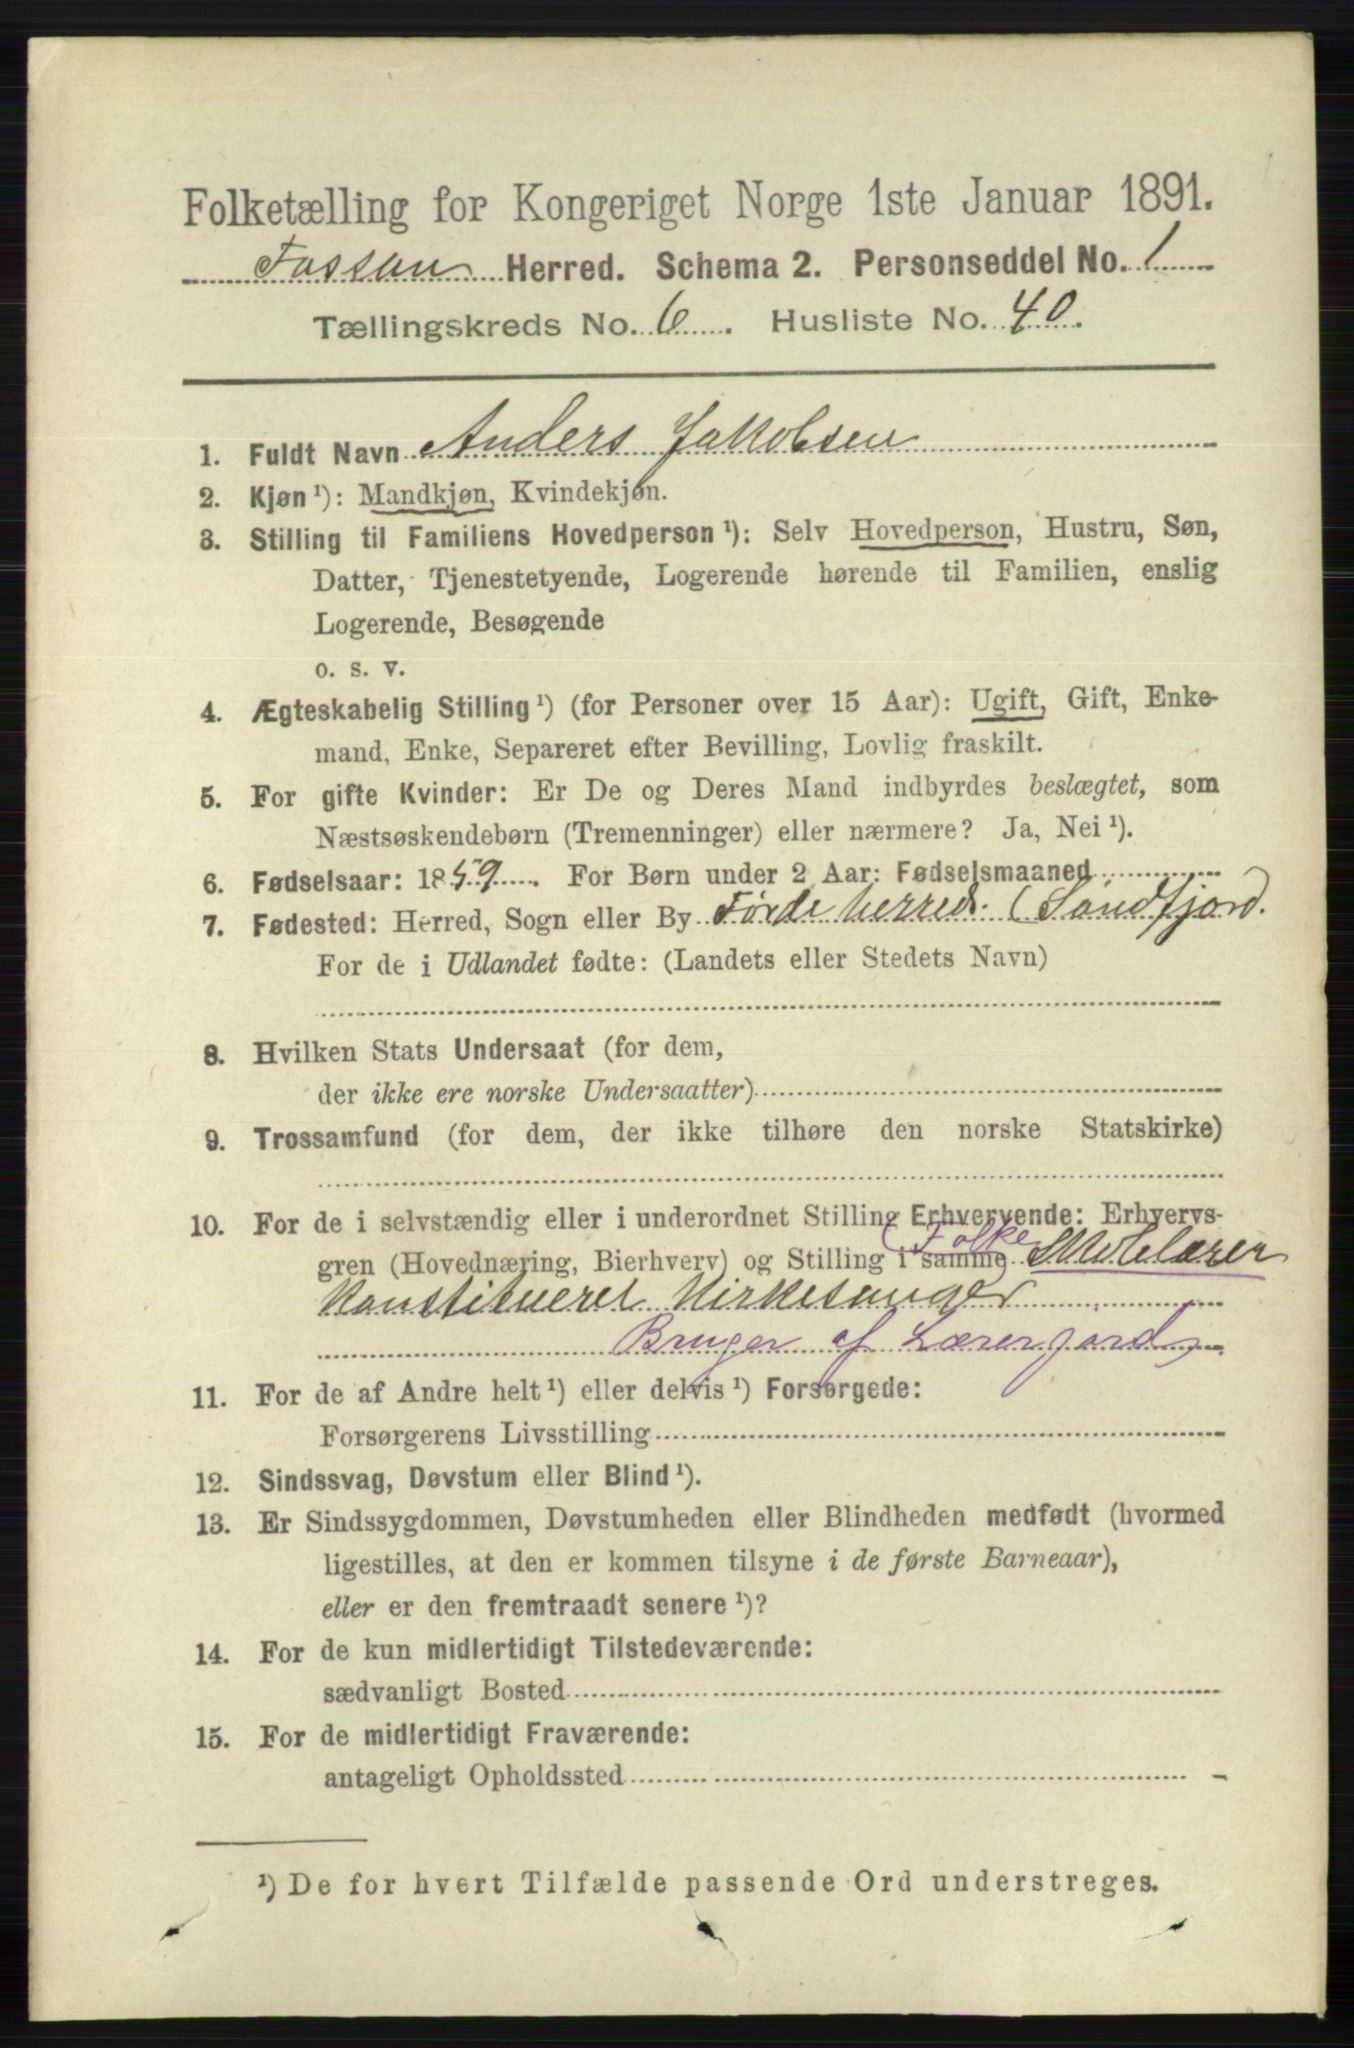 Folketælling for Kongeriget Norge 1ste Januar 1891.
Fossan Herred. Schema 2. Personseddel No. 1
Tællingskreds No. 6. Husliste No. 40.
1. Fuldt Navn Anders Jakobsen
2. Kjøn ¹): Mandkjøn, Kvindekjøn.
3. Stilling til Familiens Hovedperson ¹): Selv Hovedperson, Hustru, Søn,
Datter, Tjenestetyende, Logerende hørende til Familien, enslig
Logerende, Besøgende
o. s. v.
4. Ægteskabelig Stilling ¹) (for Personer over 15 Aar): Ugift, Gift, Enke-
mand, Enke, Separeret efter Bevilling, Lovlig fraskilt.
5. For gifte Kvinder: Er De og Deres Mand indbyrdes beslægtet, som
Næstsøskendebørn (Tremenninger) eller nærmere? Ja, Nei ¹).
6. Fødselsaar: 1859. For Børn under 2 Aar: Fødselsmaaned
7. Fødested: Herred, Sogn eller By Førde herred. (Søndfjord.
For de i Udlandet fødte: (Landets eller Stedets Navn)
8. Hvilken Stats Undersaat (for dem,
der ikke ere norske Undersaatter)
9. Trossamfund (for dem, der ikke tilhøre den norske Statskirke)
10. For de i selvstændig eller i underordnet Stilling Erhvervende: Erhvervs-
gren (Hovednæring, Bierhverv) og Stilling i samme (Folke) Skolelærer
Konstitueret Kirkesanger
Bruger af Lærerjord,
11. For de af Andre helt ¹) eller delvis ¹) Forsørgede:
Forsørgerens Livsstilling
12. Sindssvag, Døvstum eller Blind ¹).
13. Er Sindssygdommen, Døvstumheden eller Blindheden medfødt (hvormed
ligestilles, at den er kommen tilsyne i de første Barneaar),
eller er den fremtraadt senere ¹)?
14. For de kun midlertidigt Tilstedeværende:
sædvanligt Bosted
15. For de midlertidigt Fraværende:
antageligt Opholdssted
¹) De for hvert Tilfælde passende Ord understreges.